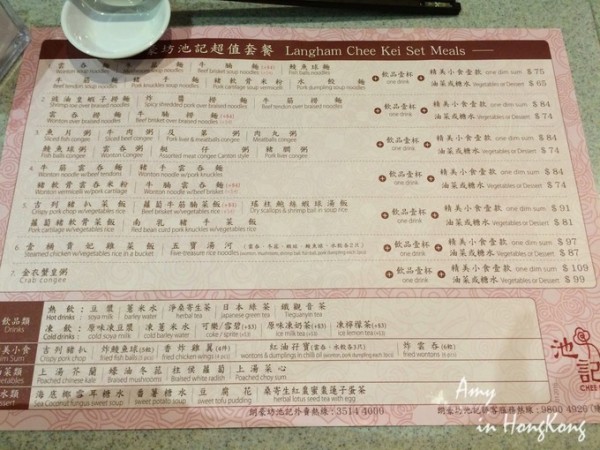 豪坊池記超值套餐 Langham Chee Kei Set Meals
雲吞麵 牛腩麵 鯪魚球麵
Wonton soup noodles Beef brisket soup noodles Fish balls noodles
飲品壹杯 one drink
精美小食壹款 one dim sum $75
油菜或糖水 Vegetables or Dessert $65
豬軟骨米粉 水餃麵
Pork cartilage soup vermicelli Pork dumpling soup noodles
2. 蝦子撈麵 炸醬撈麵 牛筋撈麵
Shrimp roe over braised noodles Spicy shredded pork over braised noodles Beef tendon over braised noodles
雲吞撈麵 牛腩撈麵
Wonton over braised noodles Beef brisket over braised noodles
飲品壹杯 one drink
精美小食壹款 one dim sum $84
油菜或糖水 Vegetables or Dessert $74
3. 魚片粥 牛肉粥 及第粥 肉丸粥
Sliced fish congee Sliced beef congee Pork liver & meatballs congee Meatballs congee
鯪魚球粥 雲吞粥 艇仔粥 豬膶粥
Fish balls congee Wonton congee Assorted meat congee Canton style Pork liver congee
飲品壹杯 one drink
精美小食壹款 one dim sum $84
油菜或糖水 Vegetables or Dessert $74
4. 牛筋雲吞麵 豬手雲吞麵
Wonton noodle w/beef tendons Wonton noodle w/pork knuckles
豬軟骨雲吞米粉 牛腩雲吞麵
Wonton vermicelli w/pork cartilage Wonton noodle w/beef brisket
飲品壹杯 one drink
精美小食壹款 one dim sum $84
油菜或糖水 Vegetables or Dessert $74
5. 吉列豬扒菜飯 蘿蔔牛筋腩菜飯 瑤柱鱸魚蝦球湯飯
Crispy pork chop w/vegetables rice Beef brisket & tendon w/vegetables rice Dry scallops & shrimp ball in soup rice
蘿蔔豬軟骨菜飯 南乳豬手菜飯
Pork cartilage w/vegetables rice Pork knuckles w/vegetables rice
飲品壹杯 one drink
精美小食壹款 one dim sum $91
油菜或糖水 Vegetables or Dessert $81
6. 壹桶貴妃雞菜飯 五寶湯河
Steamed chicken w/vegetables rice in a bucket Five-treasure rice noodles
飲品壹杯 one drink
精美小食壹款 one dim sum $97
油菜或糖水 Vegetables or Dessert $87
7. 金衣蟹皇粥
Crab congee
飲品壹杯 one drink
精美小食壹款 one dim sum $109
油菜或糖水 Vegetables or Dessert $99
飲品類 Drinks
熱飲: 豆漿 薏米水 淨桑寄生茶 日本綠茶 鐵觀音茶
Hot drinks soya milk barley water herbal tea japanese green tea Tieguanyin tea
凍飲: 原味凍豆漿 凍薏米水 可樂/雪碧(+$3) 原味凍奶茶(+$3) 凍檸檬茶(+$3)
Cold drinks cold soya milk cold barley water coke / sprite ice milk tea ice lemon tea
美小食 吉列豬扒 炸鯪魚球 香炸雞翼 紅油孖寶 炸雲吞
Crispy pork chop fried fish balls fried chicken wings wontons & dumplings in chilli oil fried wontons
上湯芥蘭 蠔油冬菇 柱侯蘿蔔 上湯菜心
Poached chinese kale Braised mushroom Braised white radish Poached choy sum
海底椰雪耳糖水 番薯糖水 豆腐花 桑寄生紅棗蜜棗蓮子蛋茶
Sea Coconut fungus sweet soup sweet potato soup sweet tofu pudding herbal lotus seed tea with egg
朗豪坊池記外賣熱線: 3514 4000
9800 4920
池記
CHEE
Amy
in HongKong